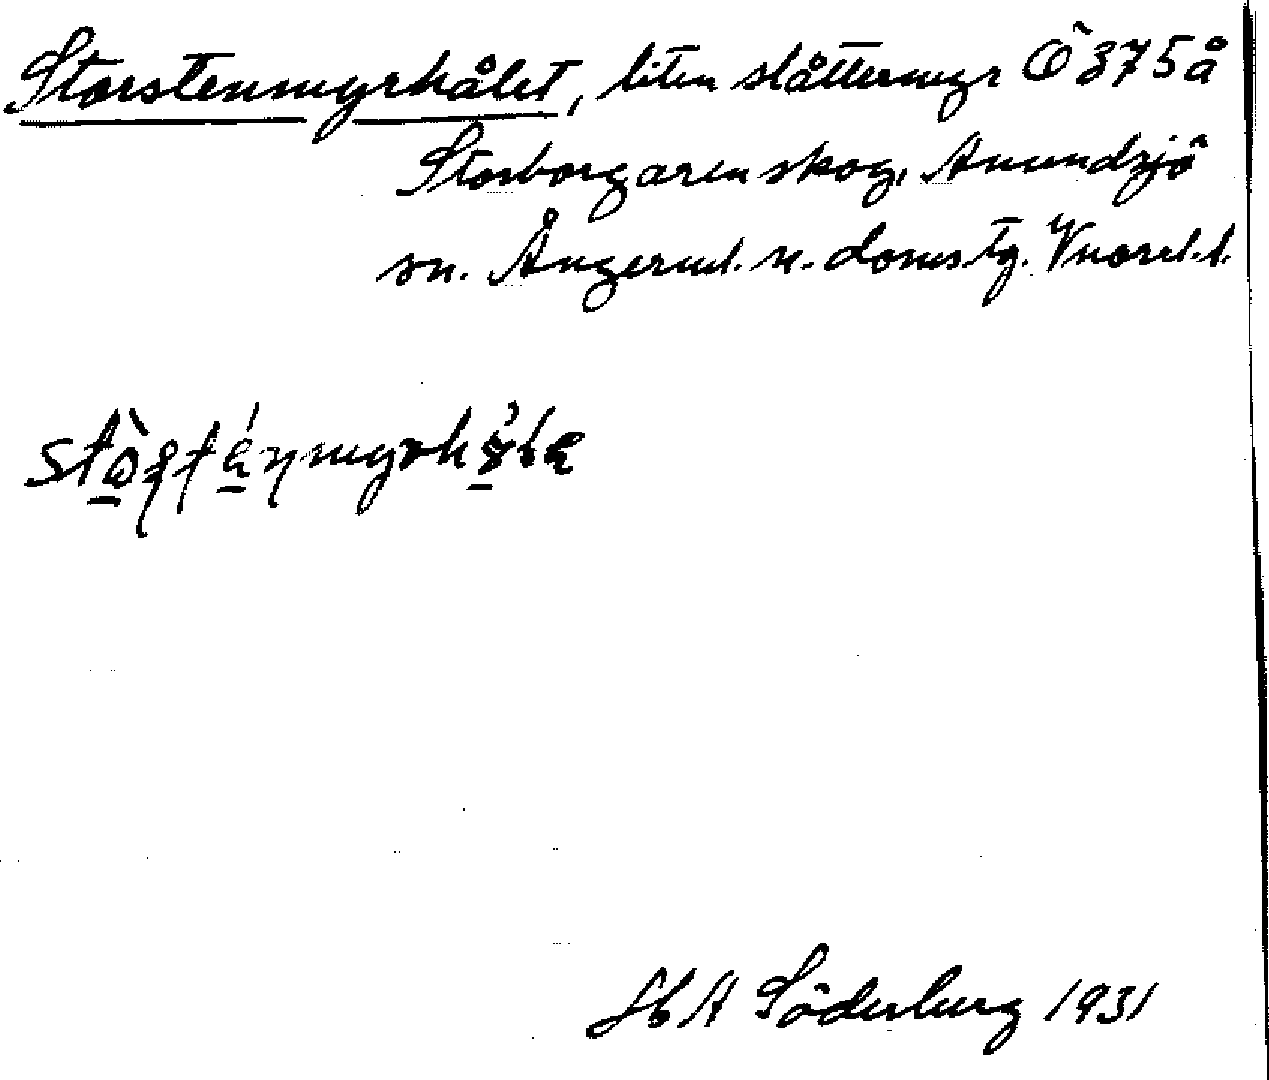 Storstenmyrhålet, liten slåttermyr Ö 375 å
Storborgaren skog, Anundsjö
sn. Ångerml. n. doms.tg. Vnorrl. l.
H A Söderberg 1931